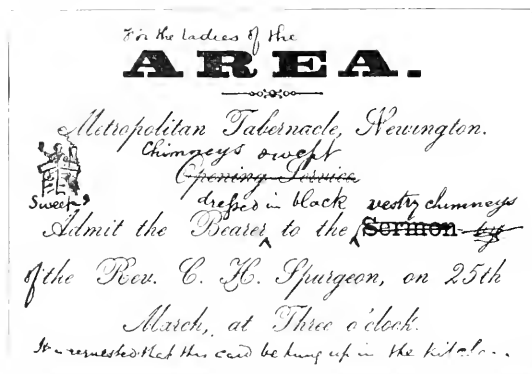 For the ladies of the
AREA.
Metropolitan Tabernacle, Newington.
Chimneys swept
Opening Service
Sweep
dressed in black vestry chimneys
Admit the Bearer to the Sermon by
of the Rev. C. H. Spurgeon, on 25th
March, at Three o'clock.
It is requested that this card be hung up in the